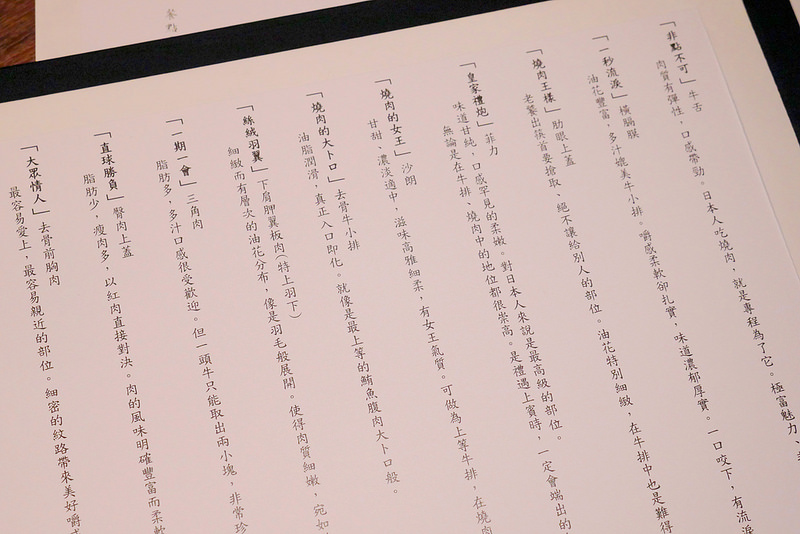 「非點不可」牛舌
肉質有彈性，口感帶勁。日本人吃燒肉，就是專程為了它。極富魅力、
「一秒流淚」橫膈膜
油花豐富，多汁媲美牛小排。嚼感柔軟卻扎實，味道濃郁厚實。一口咬下，有流淚
「燒肉王樣」肋眼上蓋
老饕出筷首要搶取、絕不讓給別人的部位。油花特別細緻，在牛排中也是難得
「皇家禮炮」菲力
味道甘純，口感罕見的柔嫩。對日本人來說是最高級的部位。
無論是在牛排、燒肉中的地位都很崇高。是禮遇上賓時，一定會端出的
「燒肉的女王」沙朗
甘甜、濃淡適中，滋味高雅細柔，有女王氣質。可做為上等牛排，在燒肉
「燒肉的大トロ」去骨牛小排
油脂潤滑，真正入口即化。就像是最上等的鮪魚腹肉大トロ般。
「絲絨羽翼」下肩胛翼板肉(特上羽下)
細緻而有層次的油花分布，像是羽毛般展開。使得肉質細嫩，宛如
「一期一會」三角肉
脂肪多，多汁口感很受歡迎。但一頭牛只能取出兩小塊，非常珍
「直球勝負」臀肉上蓋
脂肪少，瘦肉多，以紅肉直接對決。肉的風味明確豐富而柔軟
「大眾情人」去骨前胸肉
最容易愛上，最容易親近的部位。細密的紋路帶來美好嚼感